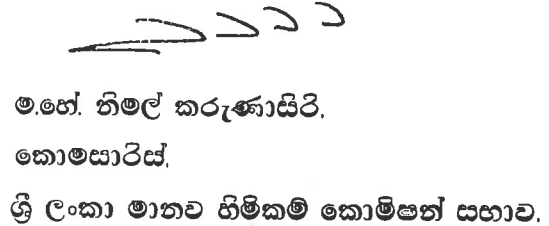 ම.හේ. නිමල් කරුණාසිරි,
කොමසාරිස්,
ශ්‍රී ලංකා මානව හිමිකම් කොමිෂන් සභාව.